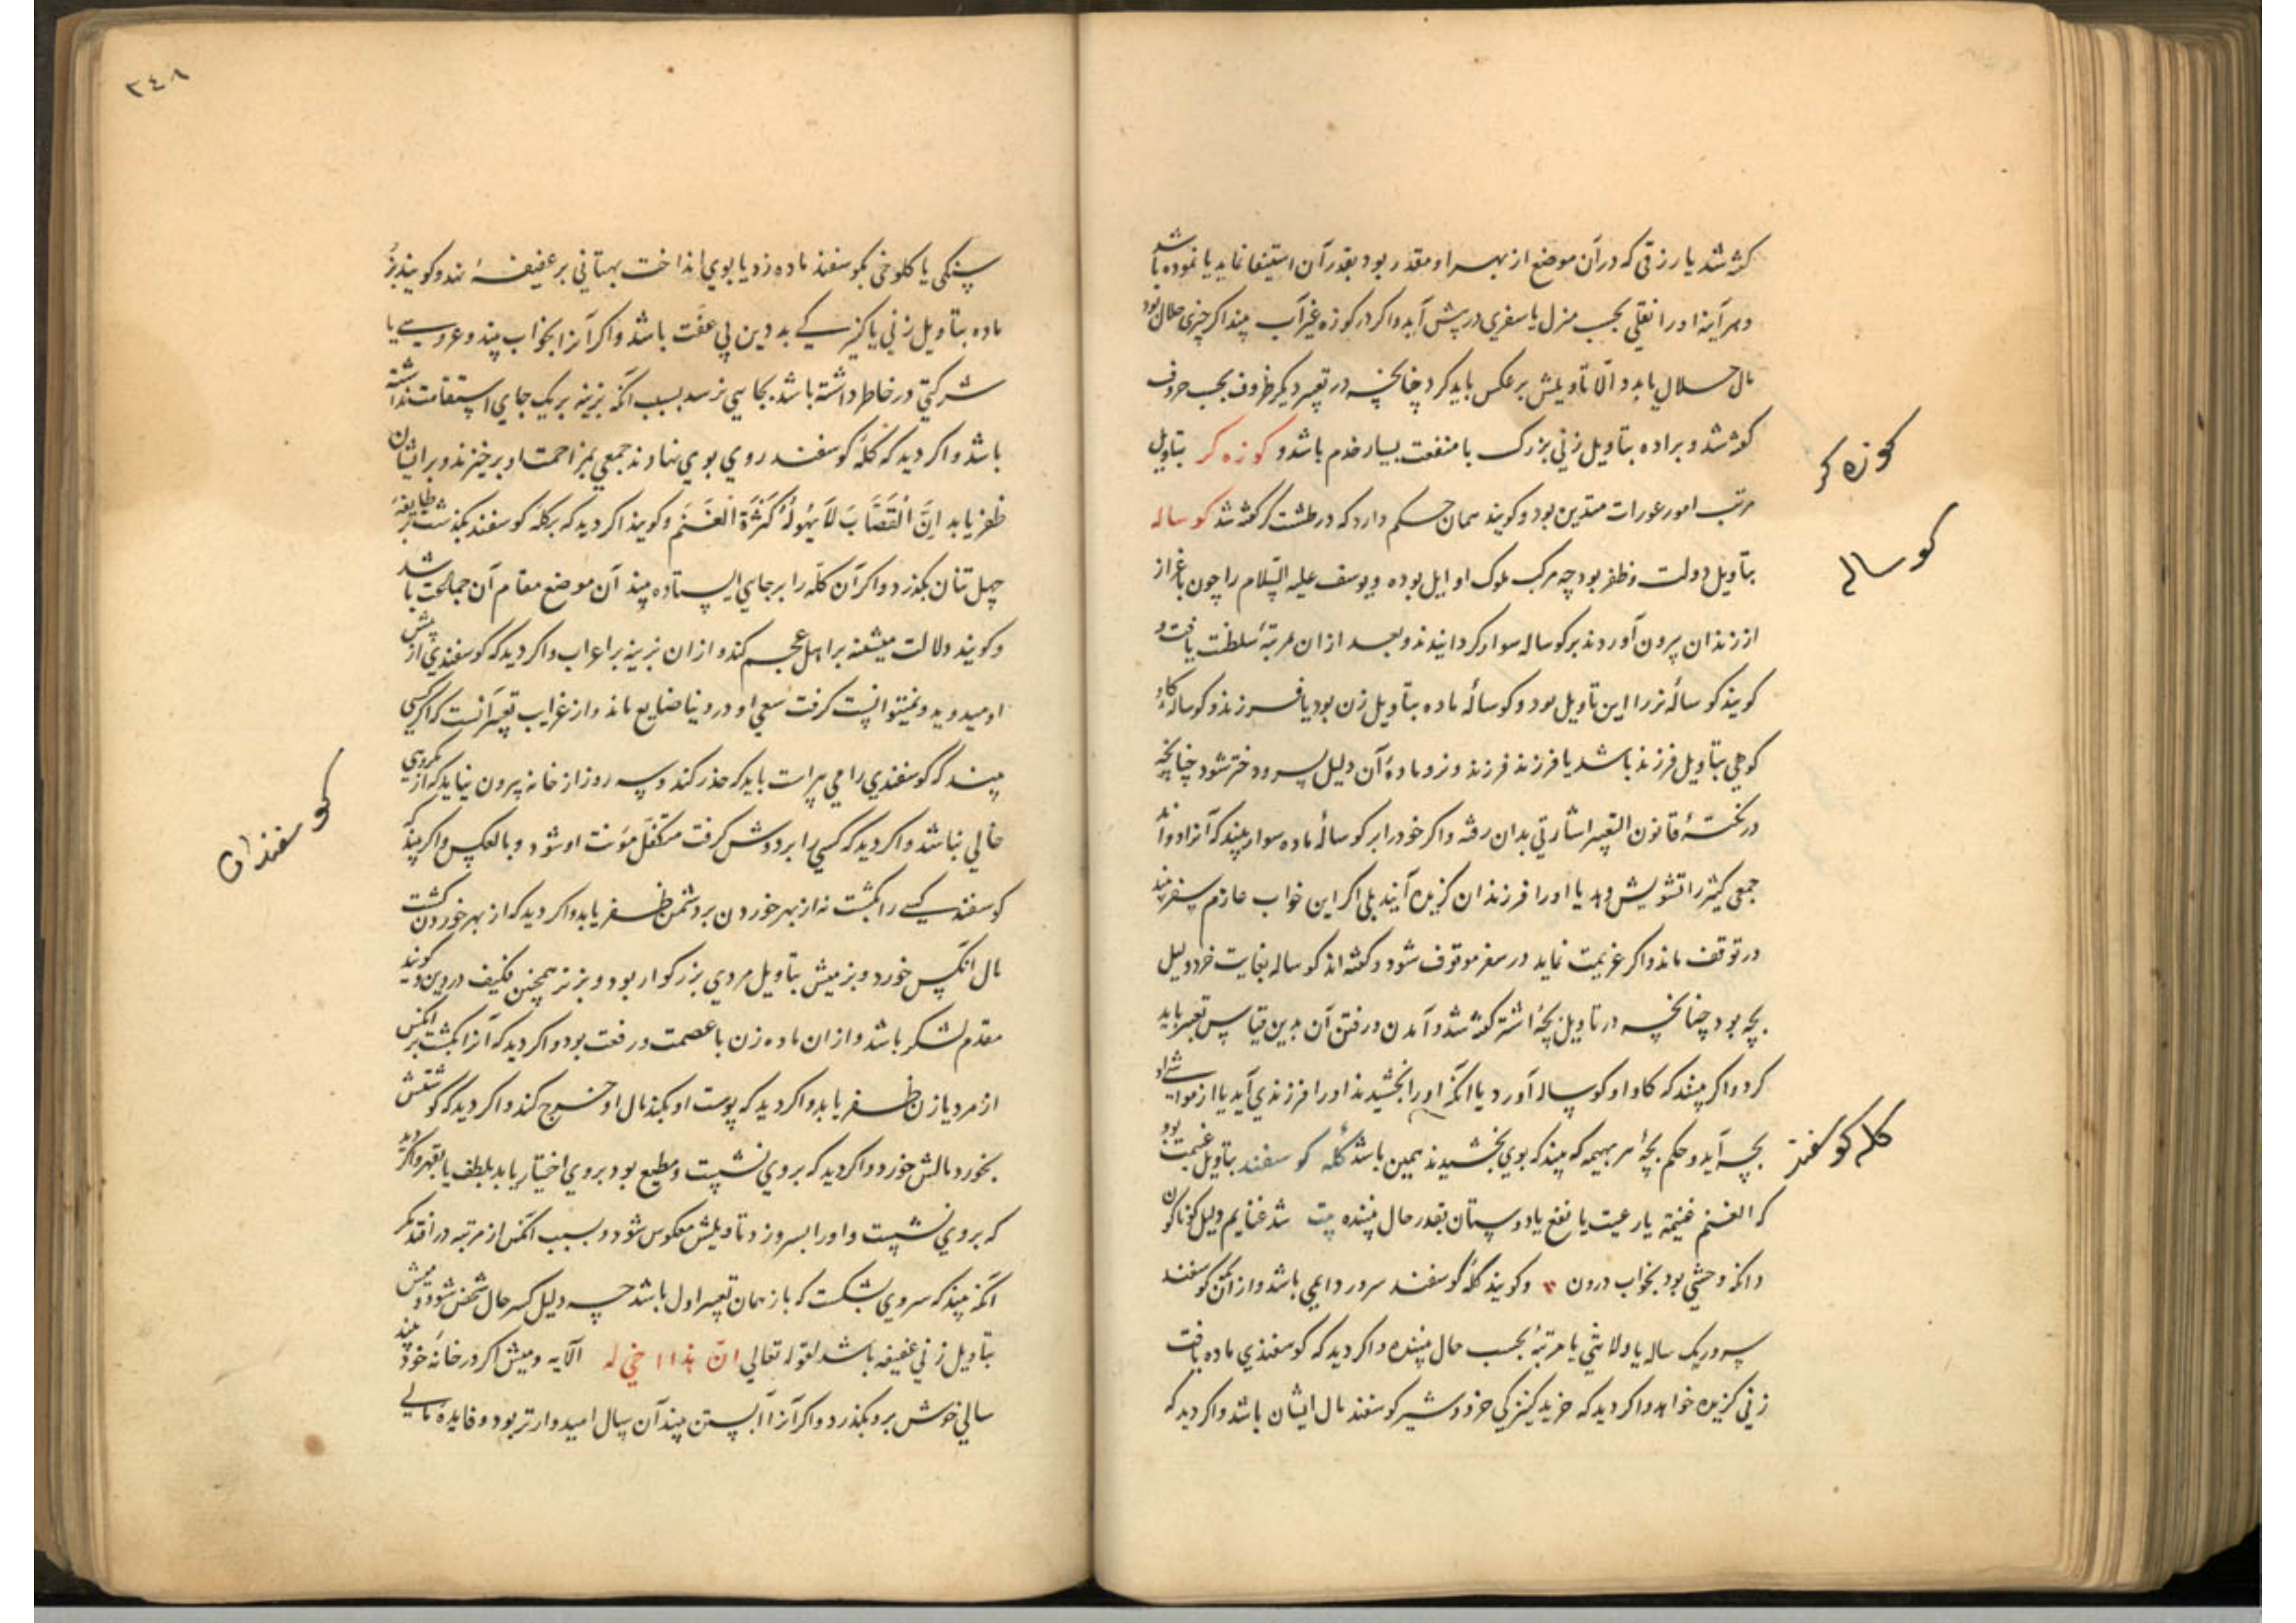 کفته شد یا رزقی که در آن موضع از بهر او مقدر بود بقدر آن استیفا نماید یا نموده باشد
و هر آینه او را نقلی بحسب منزل یا سفری در پیش آید و اکر در کوزه غیر آب بیند اکر چیزی حلال بود
مال حلال یابد و الّا تأویلش بر عکس باید کرد چنانچه در تعبیر دیکر ظروف بحسب حروف
کفته شد و براده بتأویل زنی بزرک با منفعت بسیار خدم باشد و کوزه کر بتأویل
مرتب امور عورات متدین بود و کویند همان حکم دارد که در طشت کر کفته شد کوساله
بتأویل دولت و ظفر بود چه مرکب ملوک اوایل بوده و یوسف علیه السّلام را چون باعزاز
از زندان بیرون آوردند بر کوساله سوار کردانیدند و بعد از ان مرتبهٔ سلطنت یافت و
کویند کوسالهٔ نر را این تأویل بود و کوسالهٔ ماده بتأویل زن بود یا فرزند و کوساله کاو
کوهی بتأویل فرزند باشد یا فرزند فرزند و نر و مادهٔ آن دلیل پسر و دختر شود چنانچه
در تختهٔ قانون التعبیر اشارتی بدان رفته و اکر خود را بر کوسالهٔ ماده سوار بیند که آنرا دواند
جمعی کثیر را تشویش دهد یا او را فرزندان کزیده آیند بلی اکر این خواب عازم سفر بیند
در توقف ماند و اکر عزیمت نماید در سفر موقوف شود و کفته اند کوساله بغایت خرد دلیل
بچه بود چنانچه در تأویل بچهٔ اشتر کفته شد و آمدن و رفتن آن بدین قیاس تعبیر باید
کرد و اکر بیند که کاو او کوساله آورد یا انکه او را بخشیدند او را فرزندی آید یا از مواشی او
بچه آید و حکم بچهٔ هر بهیمه که بیند که بوی بخشیدند همین باشد کله کوسفند بتأویل غنیمت بود
که الغنم غنیمة یا رعیت یا نفع یا دوستان بقدر حال بیننده شد غنایم دلیل کوناکون
وانکه وحشی بود بخواب درون وکویند کلهٔ کوسفند سرور دایمی باشد و از آن کوسفند
سرور یک ساله یا ولایتی یا مرتبهٔ بحسب حال بیننده و اکر دید که کوسفندی ماده یافت
زنی کزیده خواهد و اکر دید که خرید کنیزکی خرد و شیر کوسفند مال ایشان باشد و اکر دید که
کوزه کر
کوساله
کله کوسفند
۲۴۸
سنکی یا کلوخی بکوسفند ماده زد یا بوی انداخت بهتانی بر عفیفهٔ نهد و کویند بز
ماده بتأویل زنی یا کنیزکی بد دین بی عفّت باشد و اکر آنرا بخواب بیند و عروسی یا
شرکتی در خاطر داشته باشد بجایی نرسد بسبب انکه بزینه بر یک جای استقامت نداشته
باشد و اکر دید که کلهٔ کوسفند روی بوی نهادند جمعی بمزاحمت او برخیزند و بر ایشان
ظفر یابد اِنَّ الْقَصَّابَ لَا یَهُولُهُ کَثْرَةُ الْغَنَمِ وکویند اکر دید که بر کله کوسفند بکذشت بر طایفهٔ
چهل تنان بکذرد و اکر آن کله را بر جایی ایستاده بیند آن موضع مقام آن جماعت باشد
و کویند دلالت میشینه بر اهل عجم کند و از ان بزینه بر اعراب و اکر دید که کوسفندی از پیش
او میدوید و نمیتوانست کرفت سعی او در دنیا ضایع ماند و از غرایب تعبیر آنست که اکر کسی
بیند که کوسفندی را می پراست باید که حذر کند و سه روز از خانه بیرون نیاید که از مکروهی
خالی نباشد و اکر دید که کسی را بر دوش کرفت متکفل مؤنت او شود و بالعکس و اکر بیند که
کوسفند کسی را بکشت نه از بهر خوردن بر دشمن ظفر یابد و اکر دید که از بهر خوردن کشت
مال انکس خورد و بز میش بتأویل مردی بزرکوار بود و بز نر همچنین لکیف در وین و کویند
مقدم لشکر باشد و از ان ماده زن با عصمت و رفعت بود و اکر دید که آنرا بکشت بر انکس
از مرد یا زن ظفر یابد و اکر دید که پوست او بکند مال او خرج کند و اکر دید که کوشتش
بخورد مالش خورد و اکر دید که بر وی نشست و مطیع بود بر وی اختیار یابد بلطف یا بقهر و اکر دید
که بر وی نشست و او را بسر و زد تأویلش معکوس شود و بسبب انکس از مرتبه در افتد مکر
انکه بیند که سروی بشکست که باز همان تعبیر اول باشد چه دلیل کسر حال شخص شود و میش
بتأویل زنی عفیفه باشد لقوله تعالی انّ هذا اخی له الآیه و میش اکر در خانهٔ خود بیند
سالی خوش برو بکذرد و اکر آنرا آبستن بیند آن سال امیدوارتر بود و فایدهٔ مالی
کوسفندان